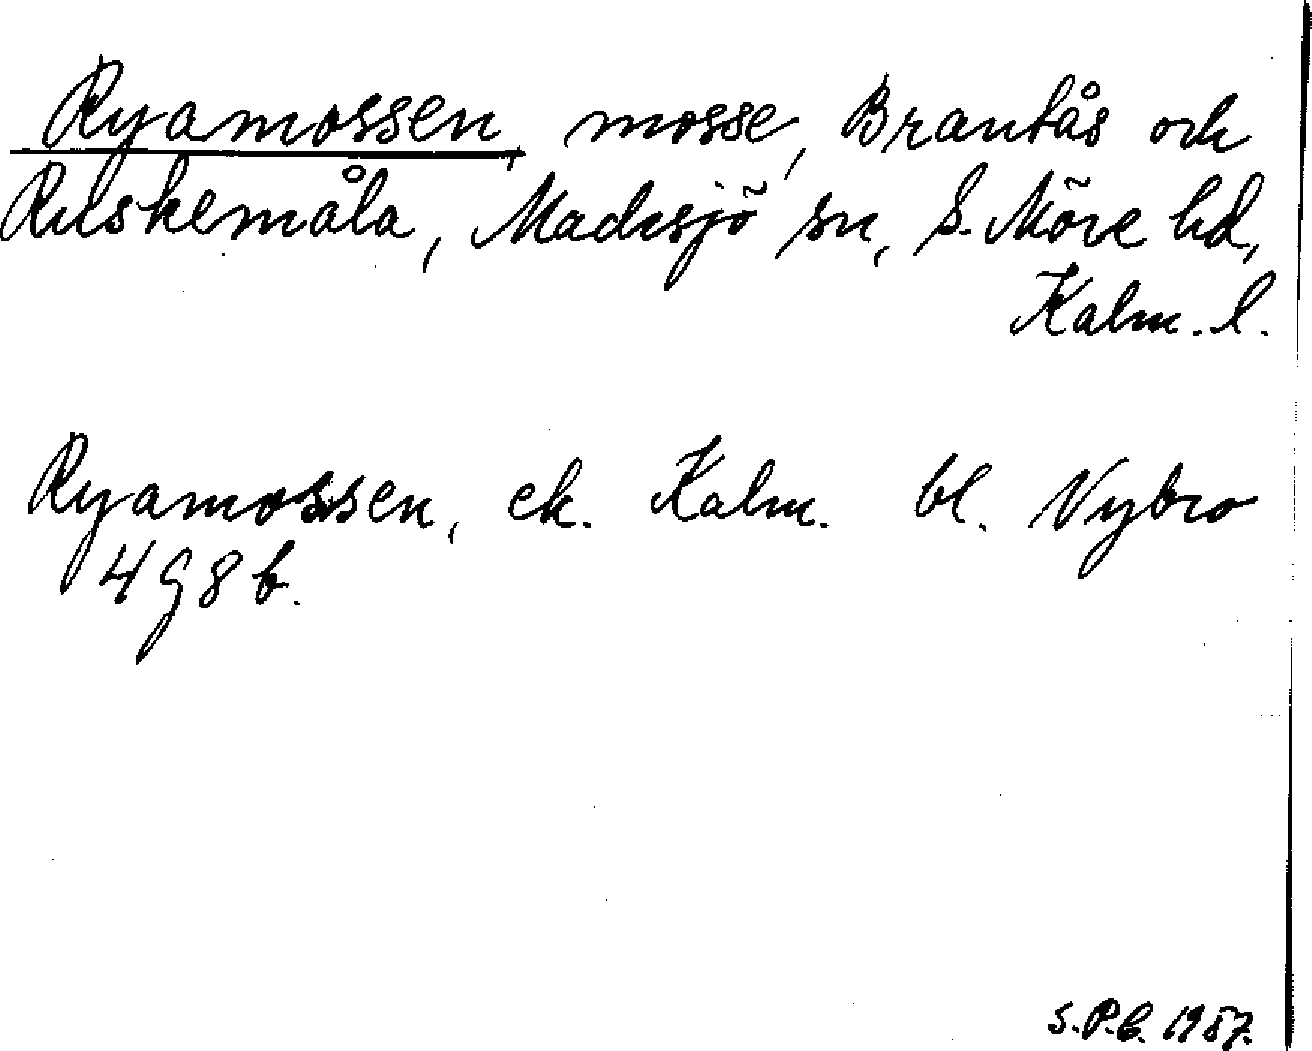 Ryamossen, mosse, Brantås och
Ruskemåla, Madesjö sn, S. Möre hd,
Kalm. l.
Ryamossen, ek. Kalm. bl. Nybro
4 G 8 b.
S.P.B. 1957.